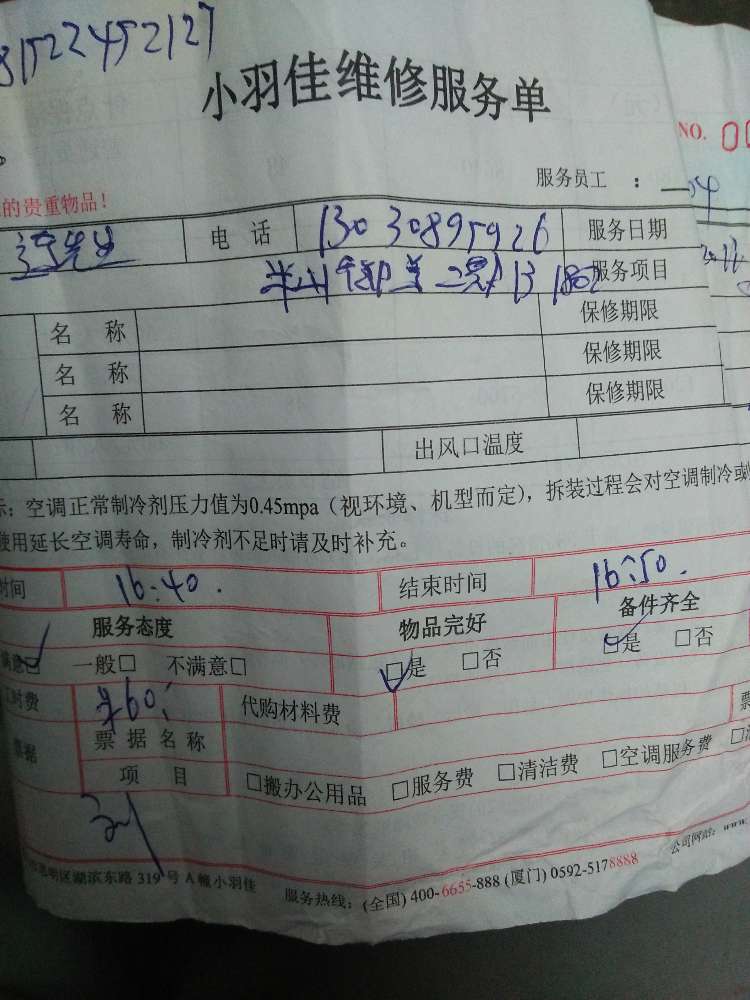 小羽佳维修服务单
NO. 00
服务员工 ：
的贵重物品！
先生 电 话 13030895926 服务日期
服务项目
名 称 保修期限
名 称 保修期限
名 称 保修期限
出风口温度
示：空调正常制冷剂压力值为0.45mpa（视环境、机型而定），拆装过程会对空调制冷或
使用延长空调寿命，制冷剂不足时请及时补充。
时间 16:40. 结束时间 16:50.
服务态度 物品完好 备件齐全
满意☑ 一般□ 不满意□ ☑是 □否 ☑是 □否
工时费 ¥60 代购材料费 票
票据 票 据 名 称
项 目 □搬办公用品 □服务费 □清洁费 □空调服务费
思明区湖滨东路 319 号 A 幢小羽佳 服务热线：(全国) 400-6655-888 (厦门) 0592-5178888 公司网站：www.